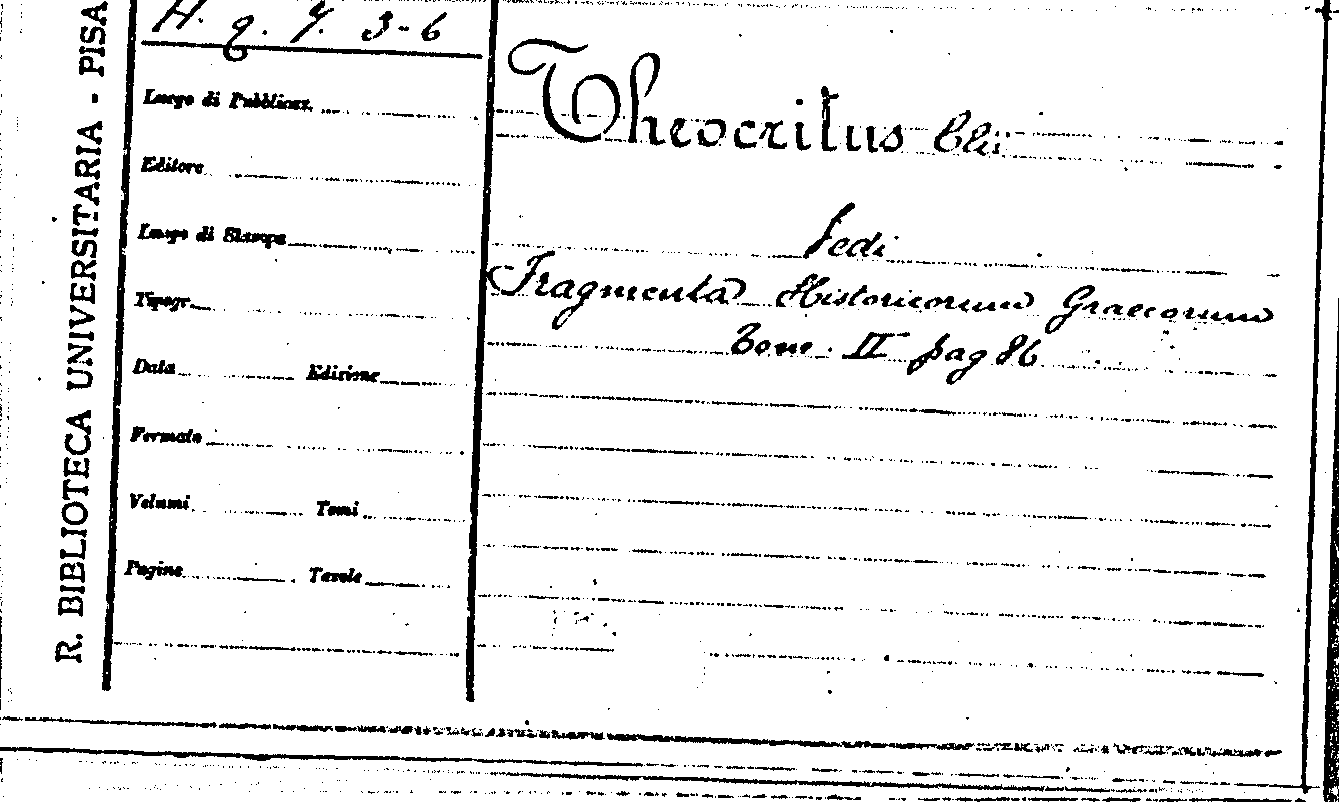 H. q. 7. 3-6
R. BIBLIOTECA UNIVERSITARIA - PISA
Luogo di Pubblicaz.
Editore
Luogo di Stampa
Tipogr.
Data Edizione
Formato
Volumi Tomi
Pagine Tavole
Theocritus Chii
Vedi
Fragmenta Historicorum Graecorum
Tom. II pag 86